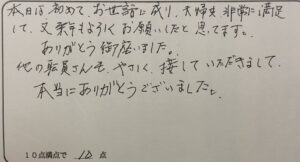 本日は初めてお世話に成り、夫婦共非常に満足
して、又来年もよろしくお願いしたと思てます。
ありがとう御座いました。
他の職員さんも、やさしく、接していただきまして、
本当にありがとうございました。
10点満点で 10 点